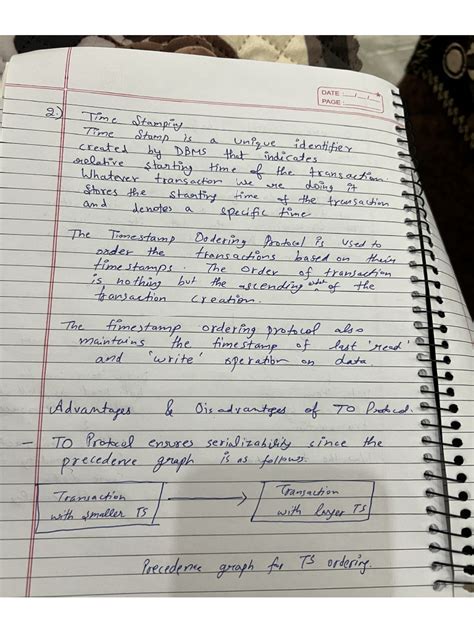 DATE : __/__/__
PAGE :
2.) Time Stamping
Time Stamp is a unique identifier
created by DBMS that indicates
relative starting time of the transaction.
Whatever transaction we are doing it
stores the starting time of the transaction
and denotes a specific time
The Timestamp Oodering Protocol is used to
order the transactions based on their
timestamps. The order of transaction
is nothing but the ascending order of the
transaction creation.
The timestamp ordering protocol also
maintains the timestamp of last 'read'
and 'write' operation on data.
Advantages & Disadvantges of TO Protocol.
- TO Protocol ensures serializability since the
precedence graph is as follows.
Transaction with smaller TS → Transaction with larger TS
Precedence graph for TS ordering.